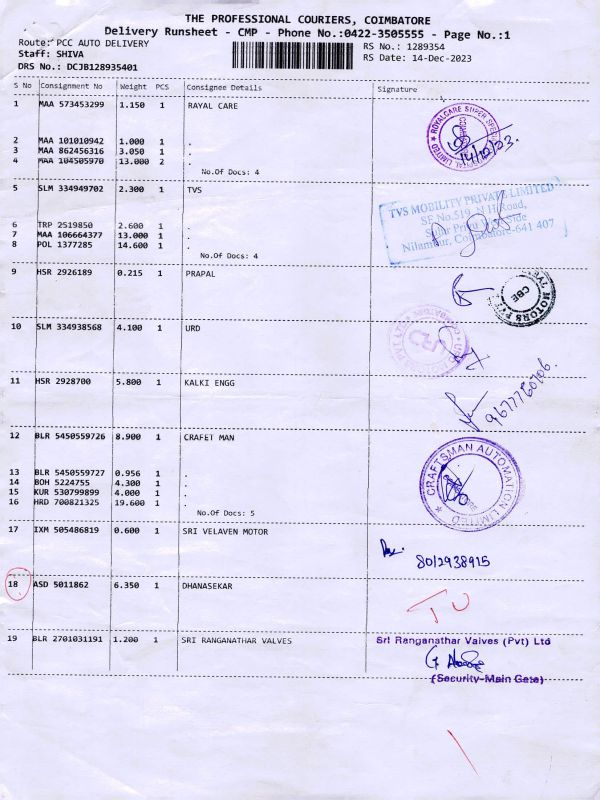 THE PROFESSIONAL COURIERS, COIMBATORE
Delivery Runsheet - CMP - Phone No.:0422-3505555 - Page No.:1
Route: PCC AUTO DELIVERY
Staff: SHIVA
DRS No.: DCJB128935401
RS No.: 1289354
RS Date: 14-Dec-2023
S No Consignment No Weight PCS Consignee Details Signature
1 MAA 573453299 1.150 1 RAYAL CARE
14/12/23.
2 MAA 101010942 1.000 1 .
3 MAA 862456316 3.050 1 .
4 MAA 104505970 13.000 2 .
No.Of Docs: 4
5 SLM 334949702 2.300 1 TVS
TVS MOBILITY PRIVATE LIMITED
SF No.519, N.H.Road,
Nilambur, Coimbatore-641 407
6 TRP 2519850 2.600 1 .
7 MAA 106664377 13.000 1 .
8 POL 1377285 14.600 1 .
No.Of Docs: 4
9 HSR 2926189 0.215 1 PRAPAL
CBE
10 SLM 334938568 4.100 1 URD
URD
11 HSR 2928700 5.800 1 KALKI ENGG
12 BLR 5450559726 8.900 1 CRAFET MAN
CRAFTSMAN AUTOMATION LIMITED
13 BLR 5450559727 0.956 1 .
14 BOH 5224755 4.300 1 .
15 KUR 530799899 4.000 1 .
16 HRD 700821325 19.600 1 .
No.Of Docs: 5
17 IXM 505486819 0.600 1 SRI VELAVEN MOTOR
8012938915
18 ASD 5011862 6.350 1 DHANASEKAR
19 BLR 2701031191 1.200 1 SRI RANGANATHAR VALVES
Sri Ranganathar Valves (Pvt) Ltd
(Security-Main Gate)